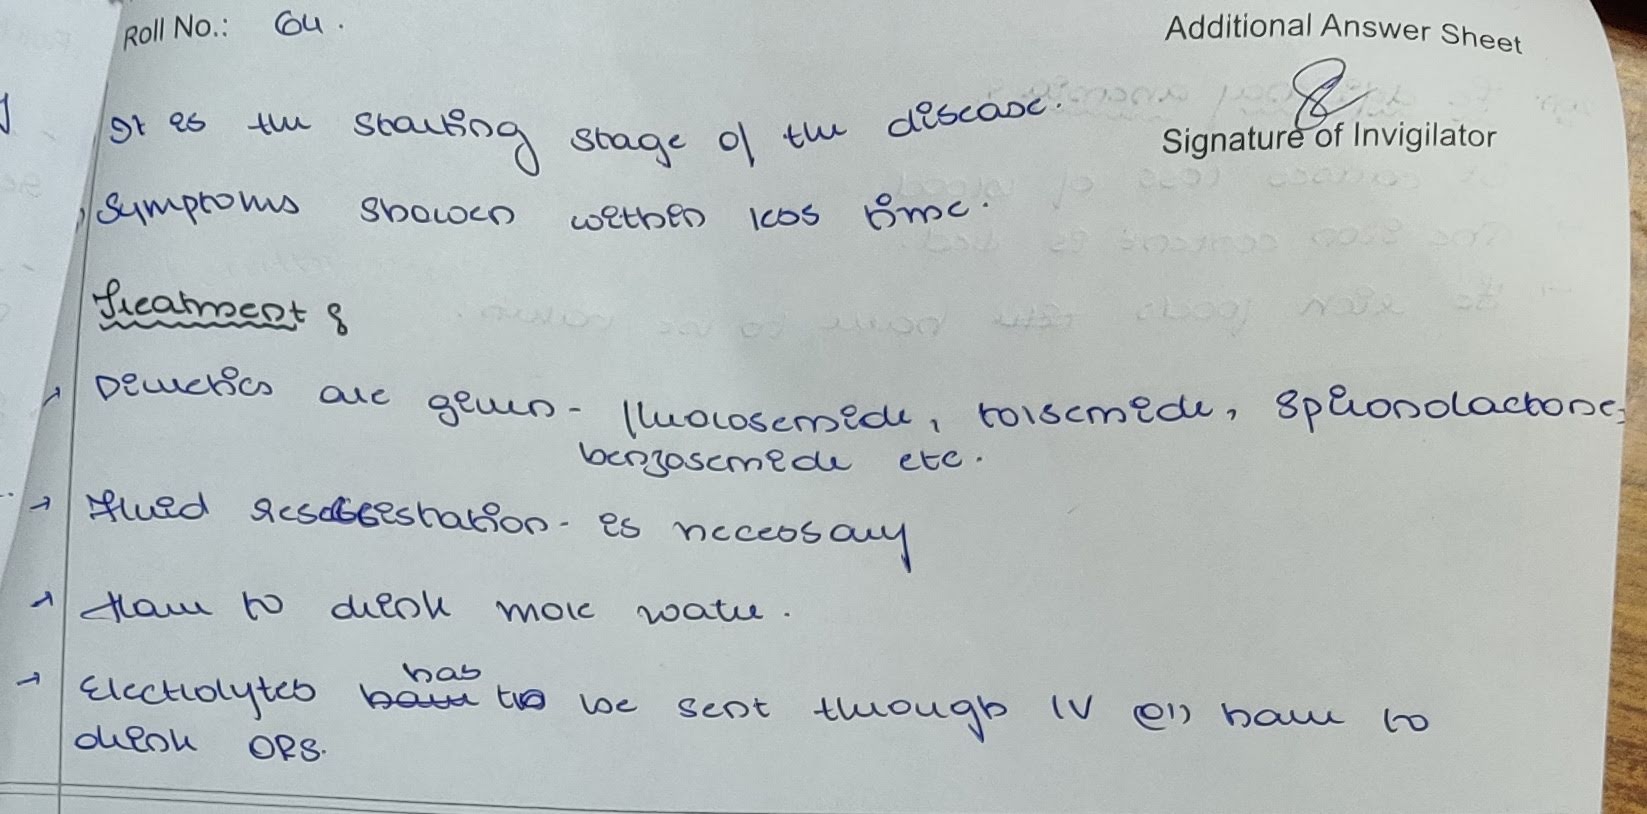 Roll No.: 64.
Additional Answer Sheet
It is the starting stage of the disease.
Signature of Invigilator
Symptoms shown within less time.
Treatment :
→ Diuretics are given - fluorosemide, torsemide, spironolactone,
benzosemide etc.
→ Fluid resuscitation - is necessary
→ Have to drink more water.
→ Electrolytes has to be sent through IV (or) have to
drink ORS.